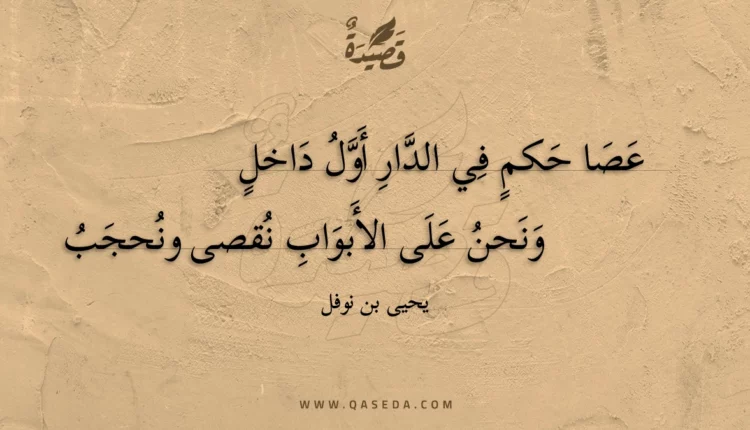 قَصِيدَةٌ
عَصَا حَكمٍ فِي الدَّارِ أَوَّلُ دَاخلٍ
وَنَحنُ عَلَى الأَبوَابِ نُقصى ونُحجَبُ
يحيى بن نوفل
WWW.QASEDA.COM